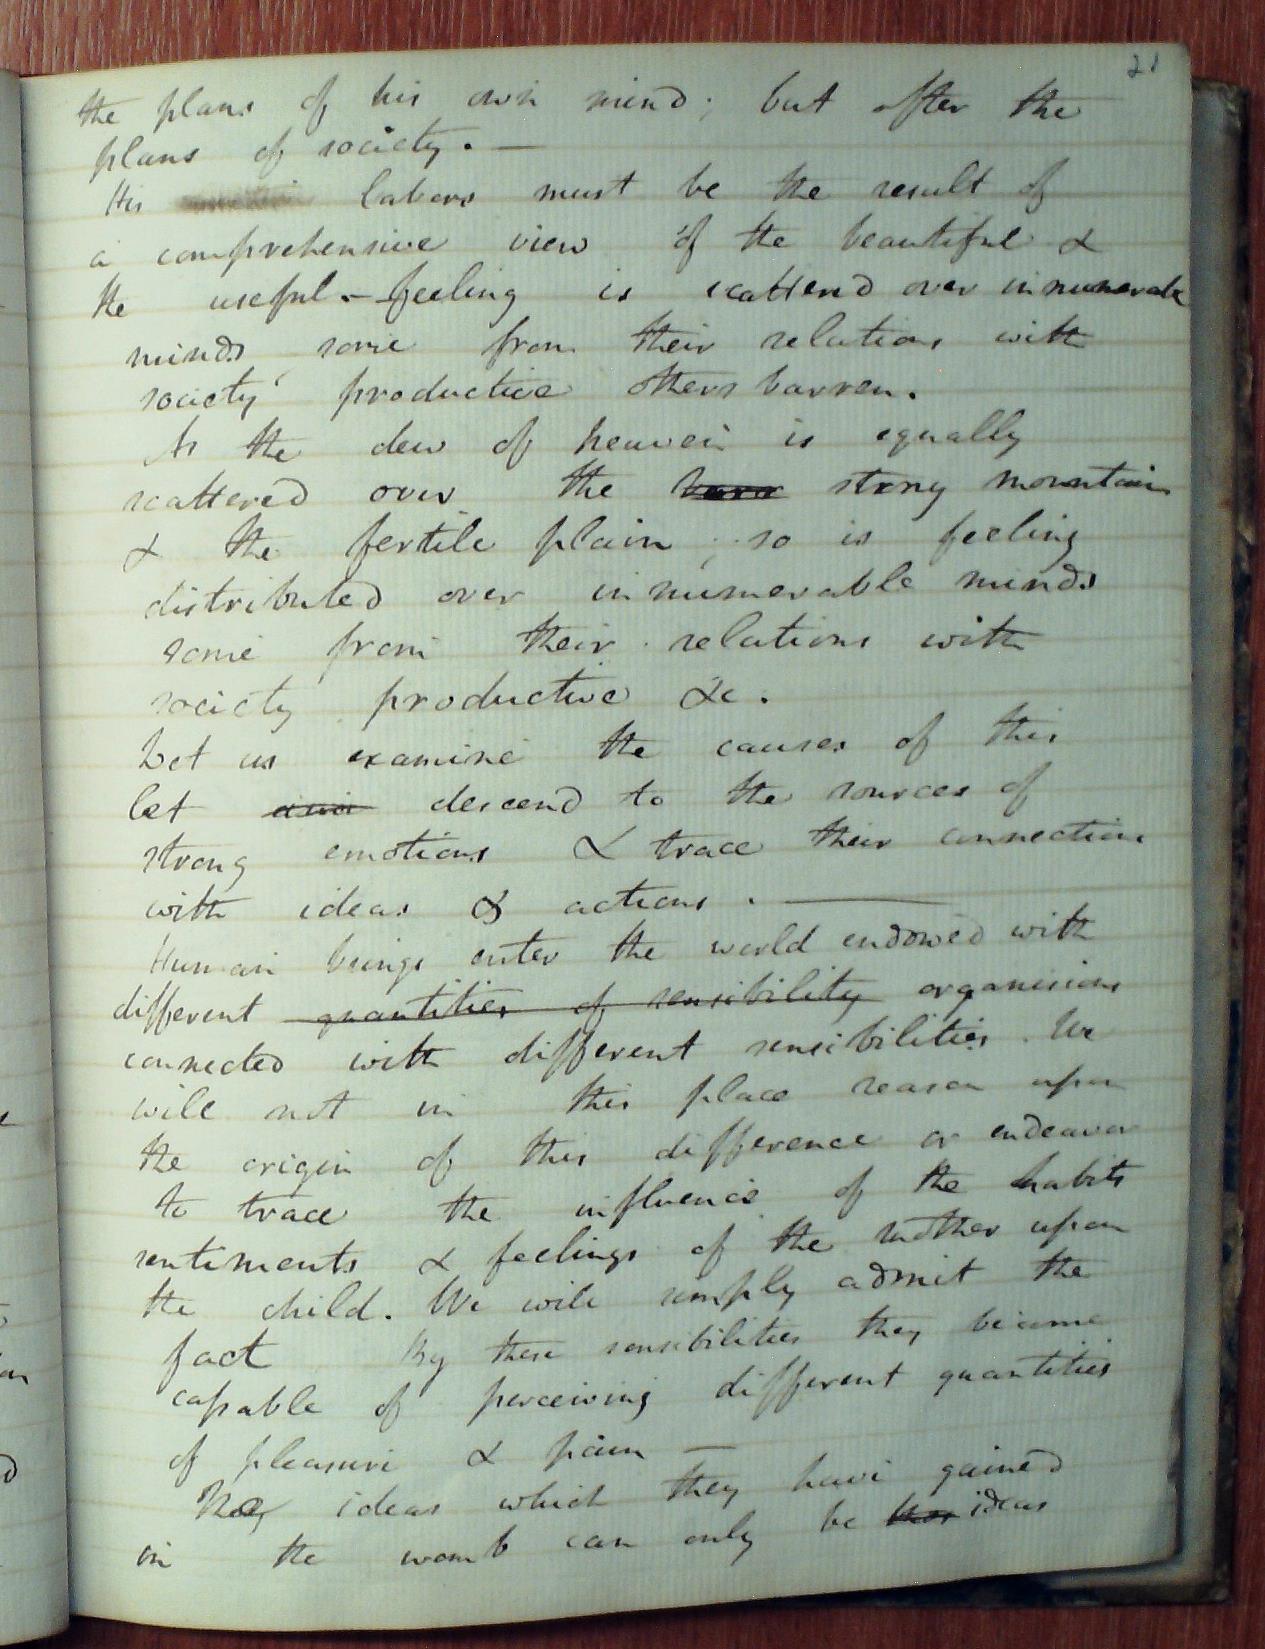 21
the plans of his own mind; but after the
plans of society. —
His labors must be the result of
a comprehensive view of the beautiful &
the useful. – feeling is scattered over innumerable
minds some from their relations with
society productive others barren.
As the dew of heaven is equally
scattered over the stony mountain
& the fertile plain; so is feeling
distributed over innumerable minds
some from their relations with
society productive &c.
Let us examine the causes of this
let descend to the sources of
strong emotions & trace their connection
with ideas & actions. —
Human beings enter the world endowed with
different quantities of sensibility organisions
connected with different sensibilities. We
will not in this place reason upon
the origin of this difference or endeavor
to trace the influence of the habits
sentiments & feelings of the mother upon
the child. We will simply admit the
fact By these sensibilities they become
capable of perceiving different quantities
of pleasure & pain —
ideas which they have gained
in the womb can only be ideas